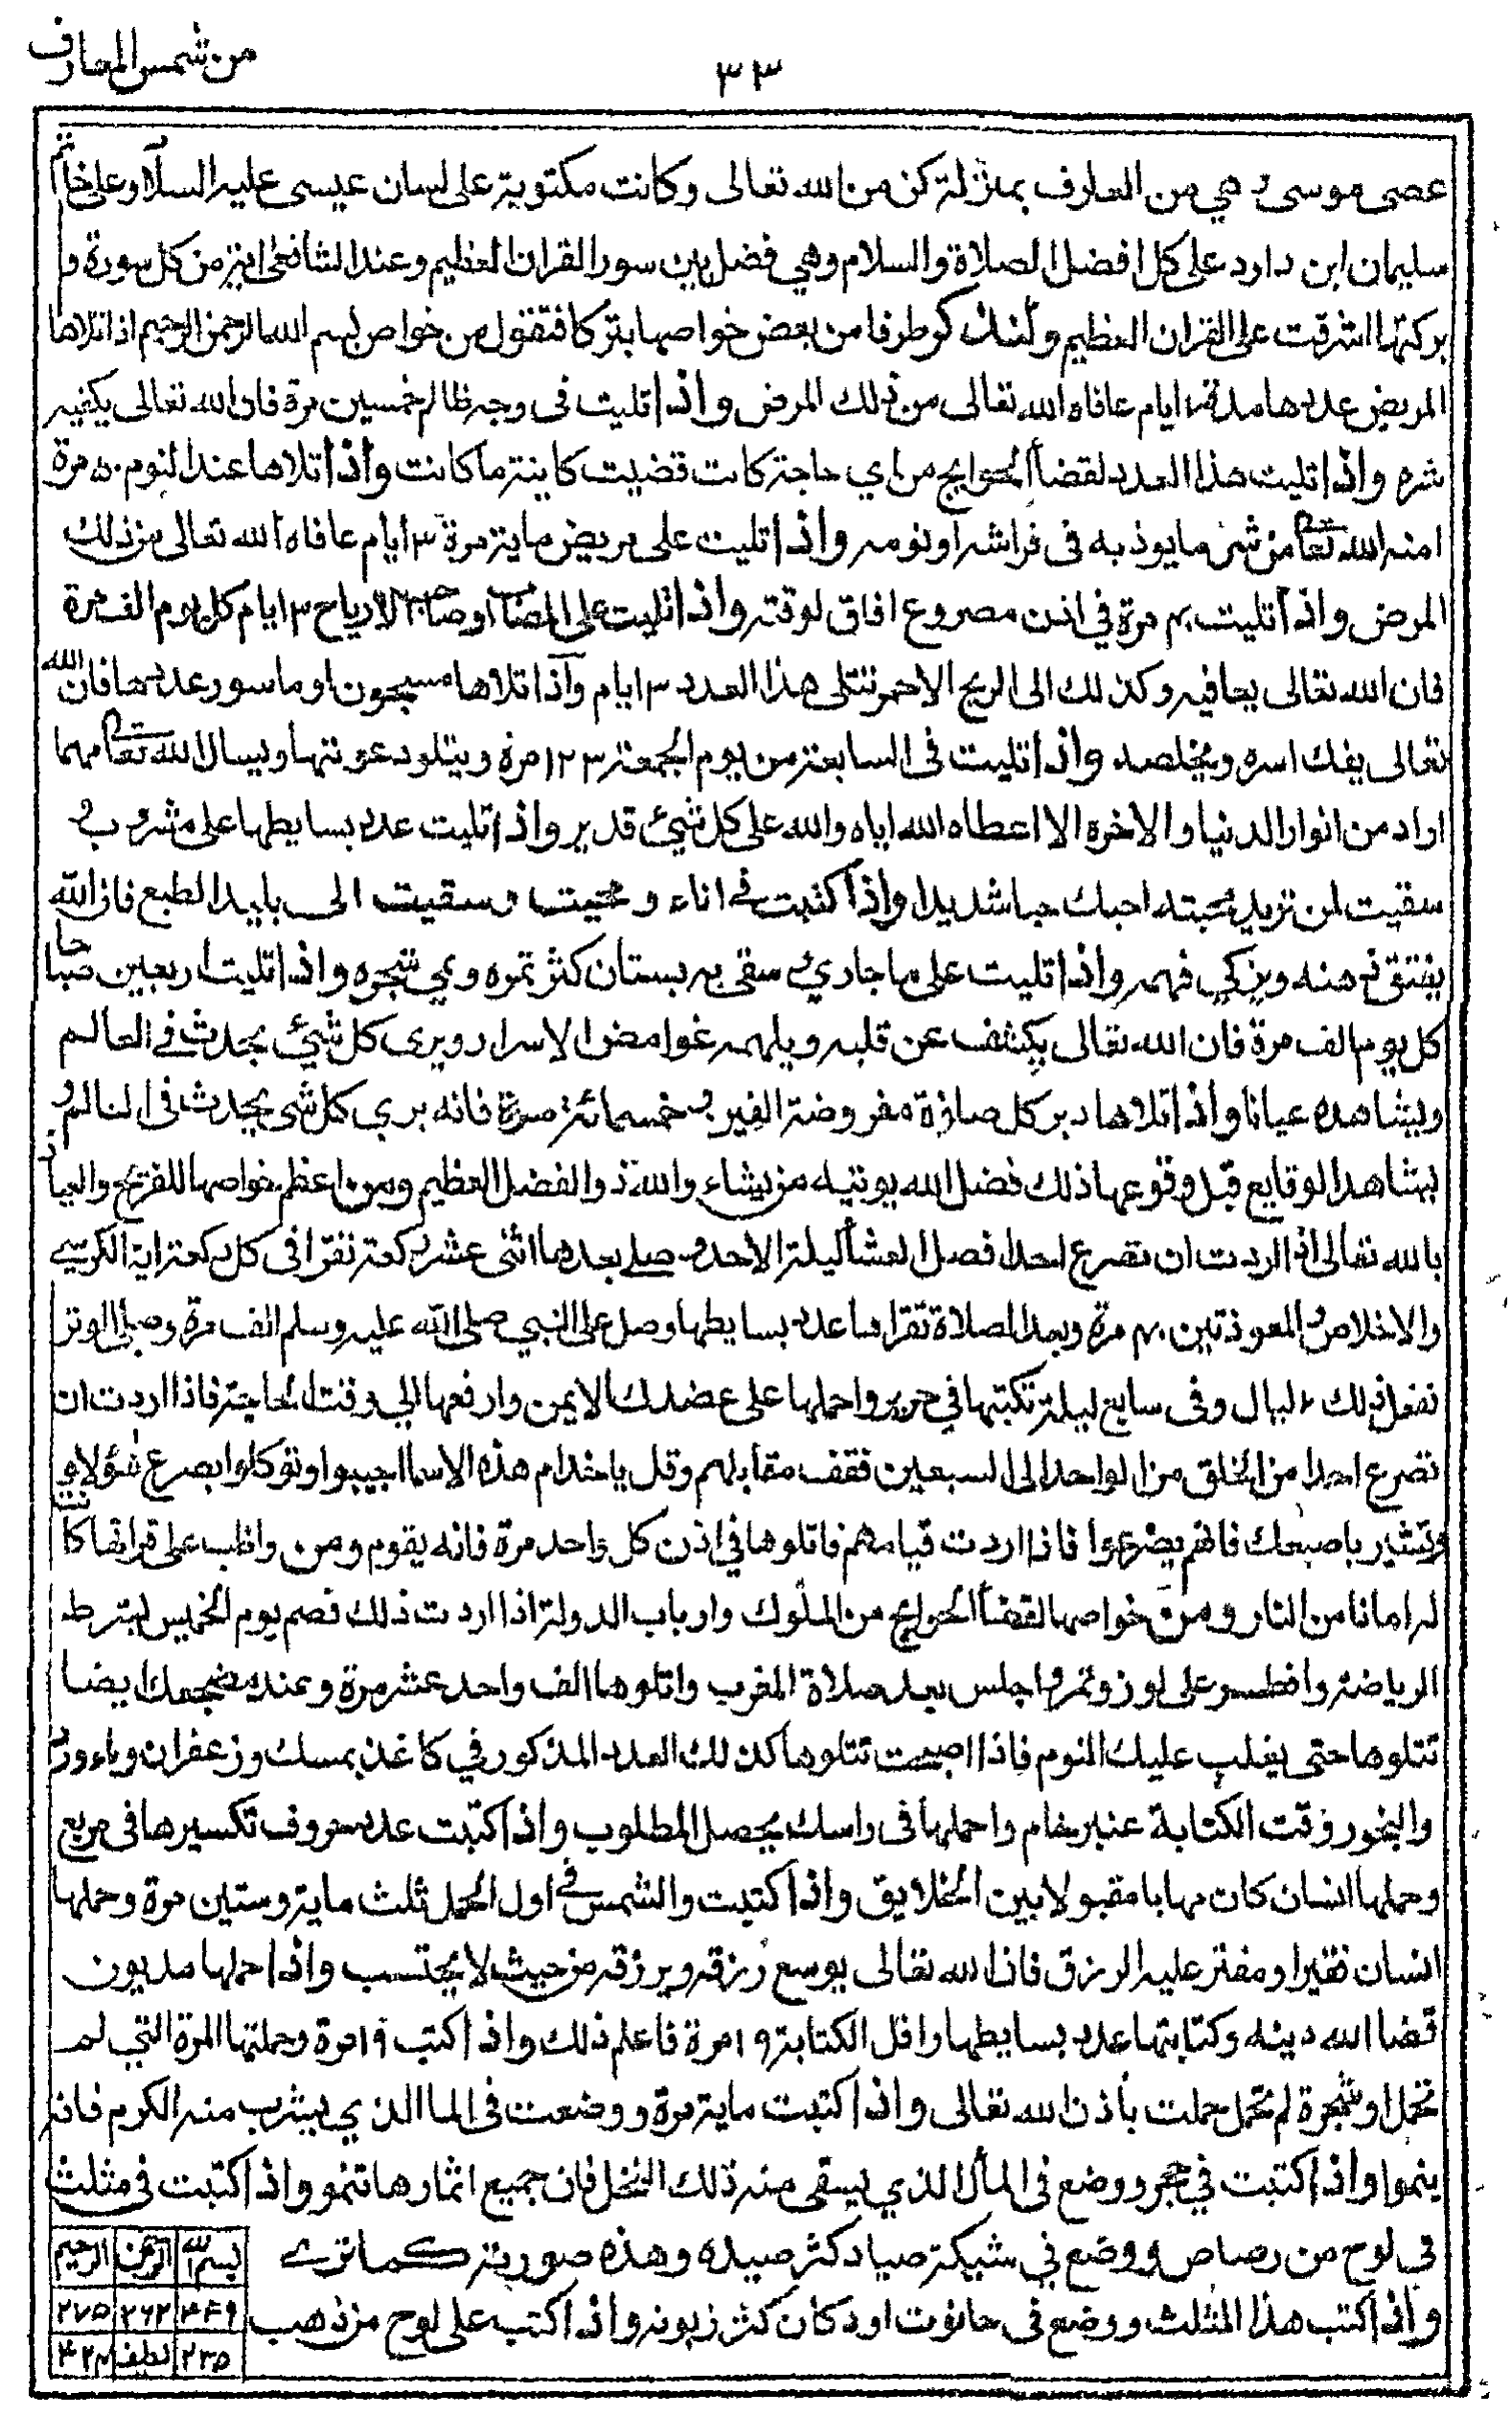 من شمس المعارف
٣٣
عصى موسى وهي من المعارف بمنزلة كن من الله تعالى وكانت مكتوبة على لسان عيسى عليه السلام وعلى خاتم
سليمان ابن داود على كل افضل الصلاة والسلام وهي فضل بين سور القران العظيم وعند الشافعي اية من كل سورة و
بركتها اشرقت على القران العظيم ولنذكر طرفا من بعض خواصها بتركا فنقول من خواص بسم الله الرحمن الرحيم اذا تلاها
المريض عددها مدة ايام عافاه الله تعالى من ذلك المرض واذا تليت في وجه ظالم خمسين مرة فان الله تعالى يكفيه
شره واذا تليت هذا العدد لقضا الحوايج من اي حاجة كانت قضيت كاينة ما كانت واذا تلاها عند النوم ٥٠ مرة
امنه الله تعا من شر ما يوذ به في فراشه او نومه واذا تليت على مريض ماية مرة ٣ ايام عافاه الله تعالى من ذلك
المرض واذا تليت ٤٠ مرة في اذن مصروع افاق لوقته واذا تليت على المصاب او صاحب الارياح ٣ ايام كل يوم الف مرة
فان الله تعالى يعافيه وكذلك الى الريح الاحمر تتلى هذا العدد ٣ ايام واذا تلاها مسجون او ماسور عددها فان الله
تعالى يفك اسره ويخلصه واذا تليت في السابعة من يوم الجمعة ١٢٣ مرة ويتلو دعوتها ويسال الله تعا مهما
اراد من انوار الدنيا والاخرة الا اعطاه الله اياه والله على كل شيئ قدير واذا تليت عدد بسايطها على مشروب و
سقيت لمن تريد محبته احبك حبا شديدا واذا كتبت في اناء ومحيت وسقيت الى بليد الطبع فان الله
يفتق ذهنه ويزكي فهمه واذا تليت على ما جاري سقى به بستان كثر ثمره ونمي شجره واذا تليت اربعين صباحا
كل يوم الف مرة فان الله تعالى يكشف عن قلبه ويلهمه غوامض الاسرار ويرى كل شيئ يحدث في العالم
ويشاهده عيانا واذا تلاها دبر كل صلوة مفروضة الفين و خمسمائة مرة فانه يري كل شي يحدث في العالم و
يشاهد الوقايع قبل وقوعها ذلك فضل الله يوتيه من يشاء والله ذو الفضل العظيم ومن اعظم خواصها للفزع والعياذ
بالله تعالى اذا اردت ان تصرع احدا فصل العشا ليلة الاحد وصلي بعدها اثنى عشر ركعة تقرا في كل ركعة اية الكرسي
والاخلاص والمعوذتين ٤٠ مرة وبعد الصلاة تقراها عدد بسايطها وصل على النبي صلى الله عليه وسلم الف مرة وصلي الوتر
تفعل ذلك ٧ ليال وفي سابع ليلة تكتبها في حرير واحملها على عضدك الايمن وارفعها الي وقت الحاجة فاذا اردت ان
تصرع احدا من الخلق من الواحد الى السبعين فقف مقابلهم وقل يا خدام هذه الاسما اجيبوا وتوكلوا بصرع هؤلاء
وتشير باصبعك فانهم يصرعوا فاذا اردت قيامهم فاتلوها في اذن كل واحد مرة فانه يقوم ومن واظب على قراتها كانت
له امانا من النار ومن خواصها لقضا الحوايج من الملوك وارباب الدولة اذا اردت ذلك فصم يوم الخميس بشرط
الرياضة وافطر على لوز وتمر واجلس بعد صلاة المغرب واتلوها الف واحد عشر مرة وعند مضجعك ايضا
تتلوها حتى يغلب عليك النوم فاذا اصبحت تتلوها كذلك العدد المذكور في كاغد بمسك وزعفران وماء ورد
والبخور وقت الكتابة عنبر خام واحملها في راسك يحصل المطلوب واذا كتبت عدد حروف تكسيرها في مربع
وحملها انسان كان مهابا مقبولا بين الخلايق واذا كتبت والشمس في اول الحمل ثلث ماية وستين مرة وحملها
انسان فقيرا ومفتر عليه الرزق فان الله تعالى يوسع رزقه ويرزقه من حيث لا يحتسب واذا حملها مديون
قضا الله دينه وكتابتها عدد بسايطها واقل الكتابة ١٩ مرة فاعلم ذلك واذا كتب ١٩ مرة وحملتها المرة التي لم
تحمل او شجرة لم تحمل حملت بأذن الله تعالى واذا كتبت ماية مرة ووضعت في الما الذي يشرب منه الكرم فانه
ينموا واذا كتبت في حجر ووضع في الما الذي يسقى منه ذلك النخل فان جميع اثمارها تنمو واذا كتبت في مثلث
في لوح من رصاص ووضع في شبكة صياد كثر صيده وهذه صورية كما ترى
واذا كتب هذا المثلث ووضع في حانوت او دكان كثر زبونه واذا كتب على لوح من ذهب
بسم الله الرحمن الرحيم
٣٤٩ ٢٦٢ ٢٧٥
٢٣٥ لطيف